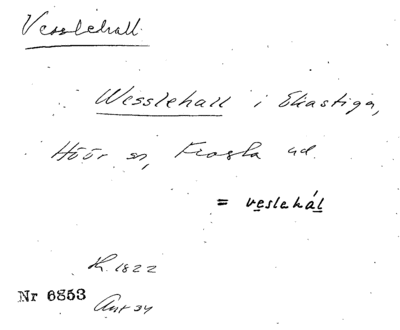 Vesslehall.
Wesslehall i Ekastiga,
Höör sn, Frosta hd.
= veslehál
K. 1822
Nr 6853
Ant 34